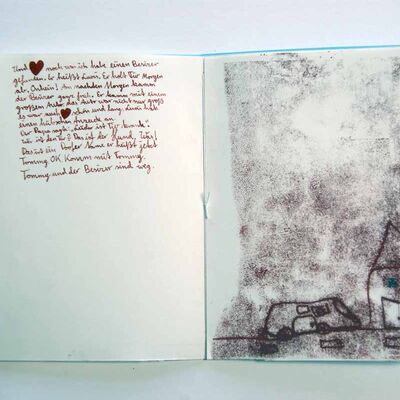 Und ♥ noch was ich habe einen Besizer
gefunden. Er heißt Luri. Er holt Tür Morgen
ab. Onhein! Am nachsden Morgen kamm
der Besizer ganz früh. Er kamm mit einem
großem Auto das Auto war nicht nur groß
es war auch ♥ schön und lang. Luri hat
einen hübschen an.
Der Papa sagt: „Leider ist Tür krank."
Das ist der Hund, Tür!
Das ist ein Name er heißt jetzt
Tommy. OK Komm mit Tommy.
Tommy und der Besizer sind weg.